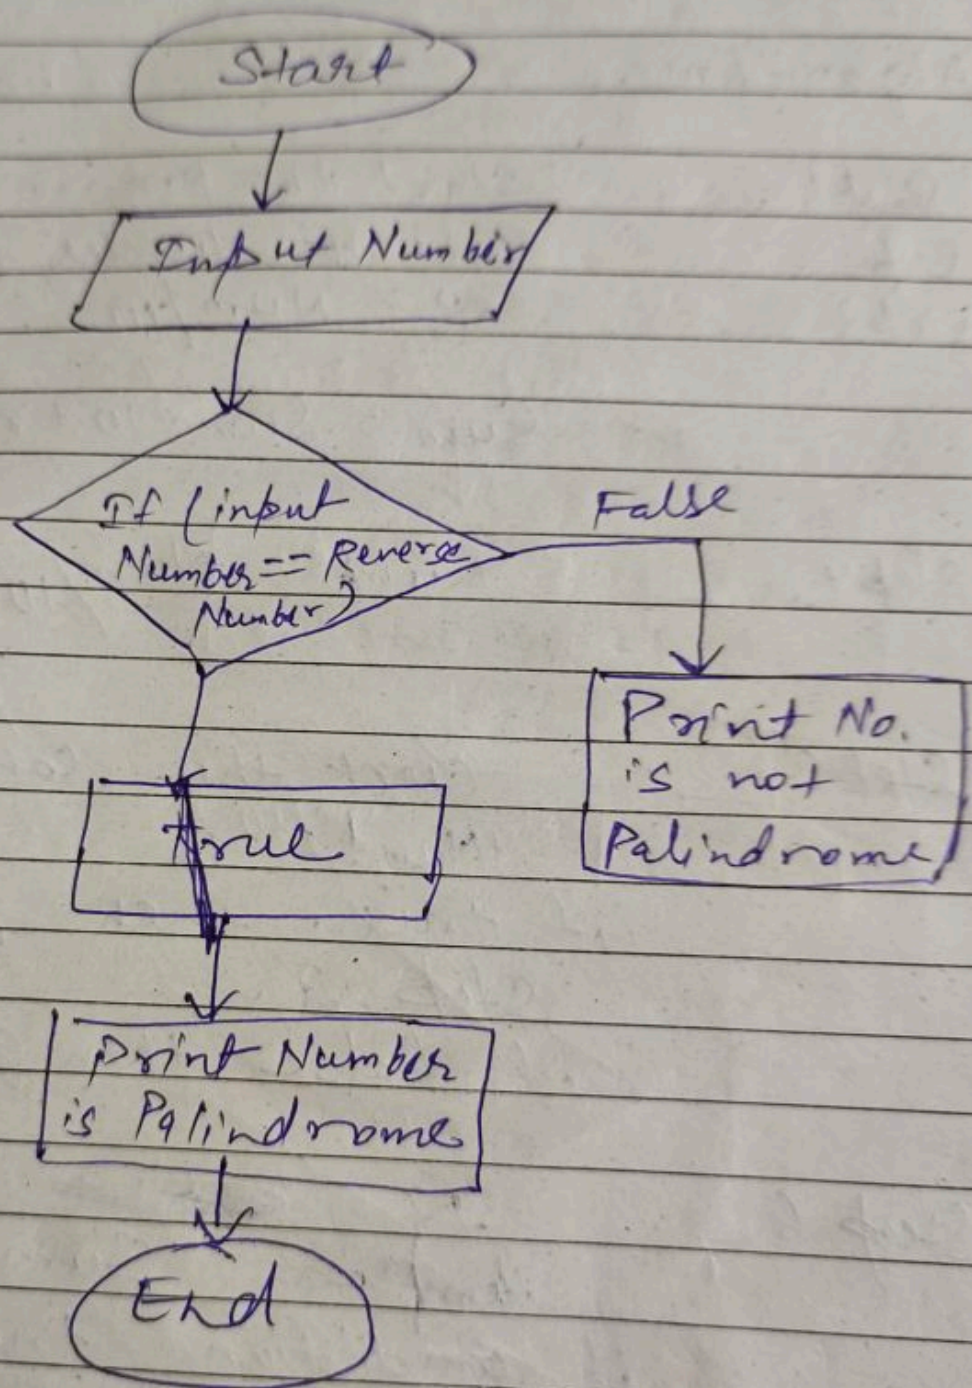 Start
Input Number
If (input
Number == Reverse
Number)
False
True
Print No.
is not
Palindrome
Print Number
is Palindrome
End